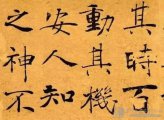 其時百
動其機
安人知
之神不